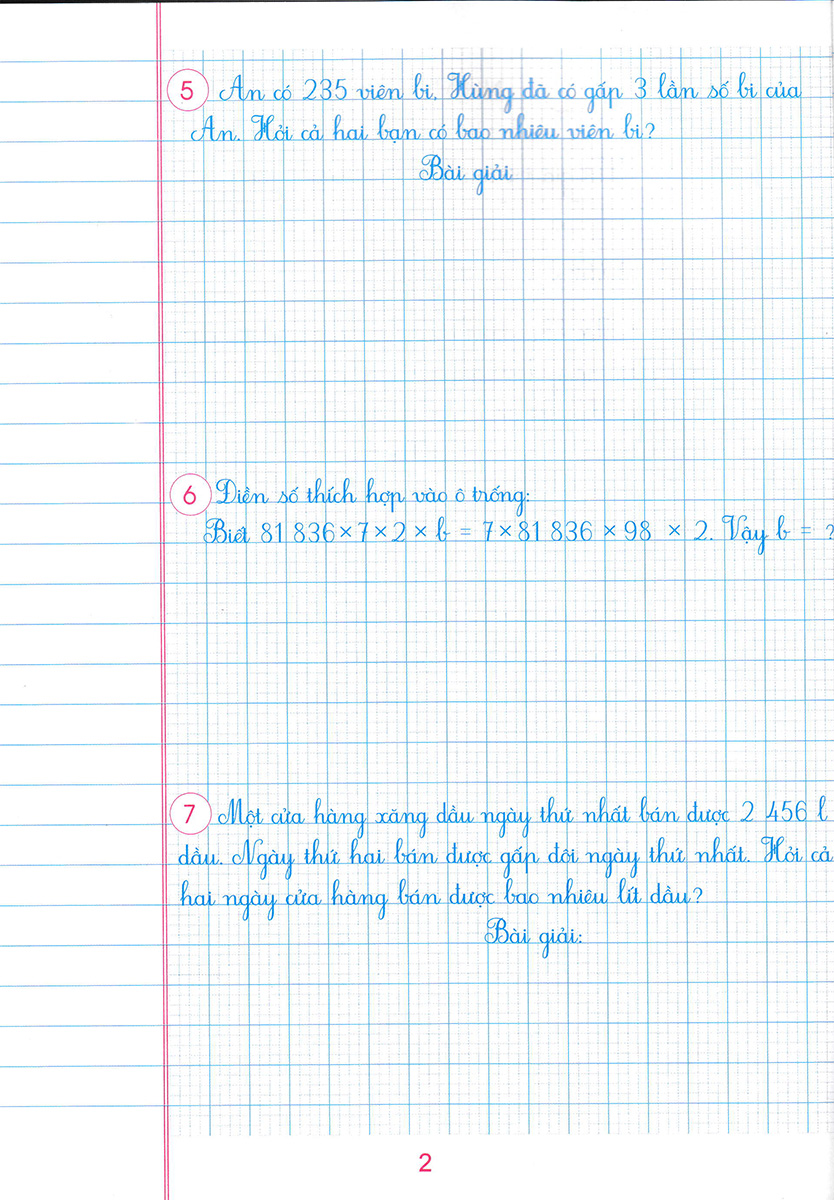 5 An có 235 viên bi. Hùng đã có gấp 3 lần số bi của
An. Hỏi cả hai bạn có bao nhiêu viên bi?
Bài giải
6 Điền số thích hợp vào ô trống:
Biết 81 836 × 7 × 2 × b = 7 × 81 836 × 98 × 2. Vậy b = ?
7 Một cửa hàng xăng dầu ngày thứ nhất bán được 2 456 l
dầu. Ngày thứ hai bán được gấp đôi ngày thứ nhất. Hỏi cả
hai ngày cửa hàng bán được bao nhiêu lít dầu?
Bài giải:
2